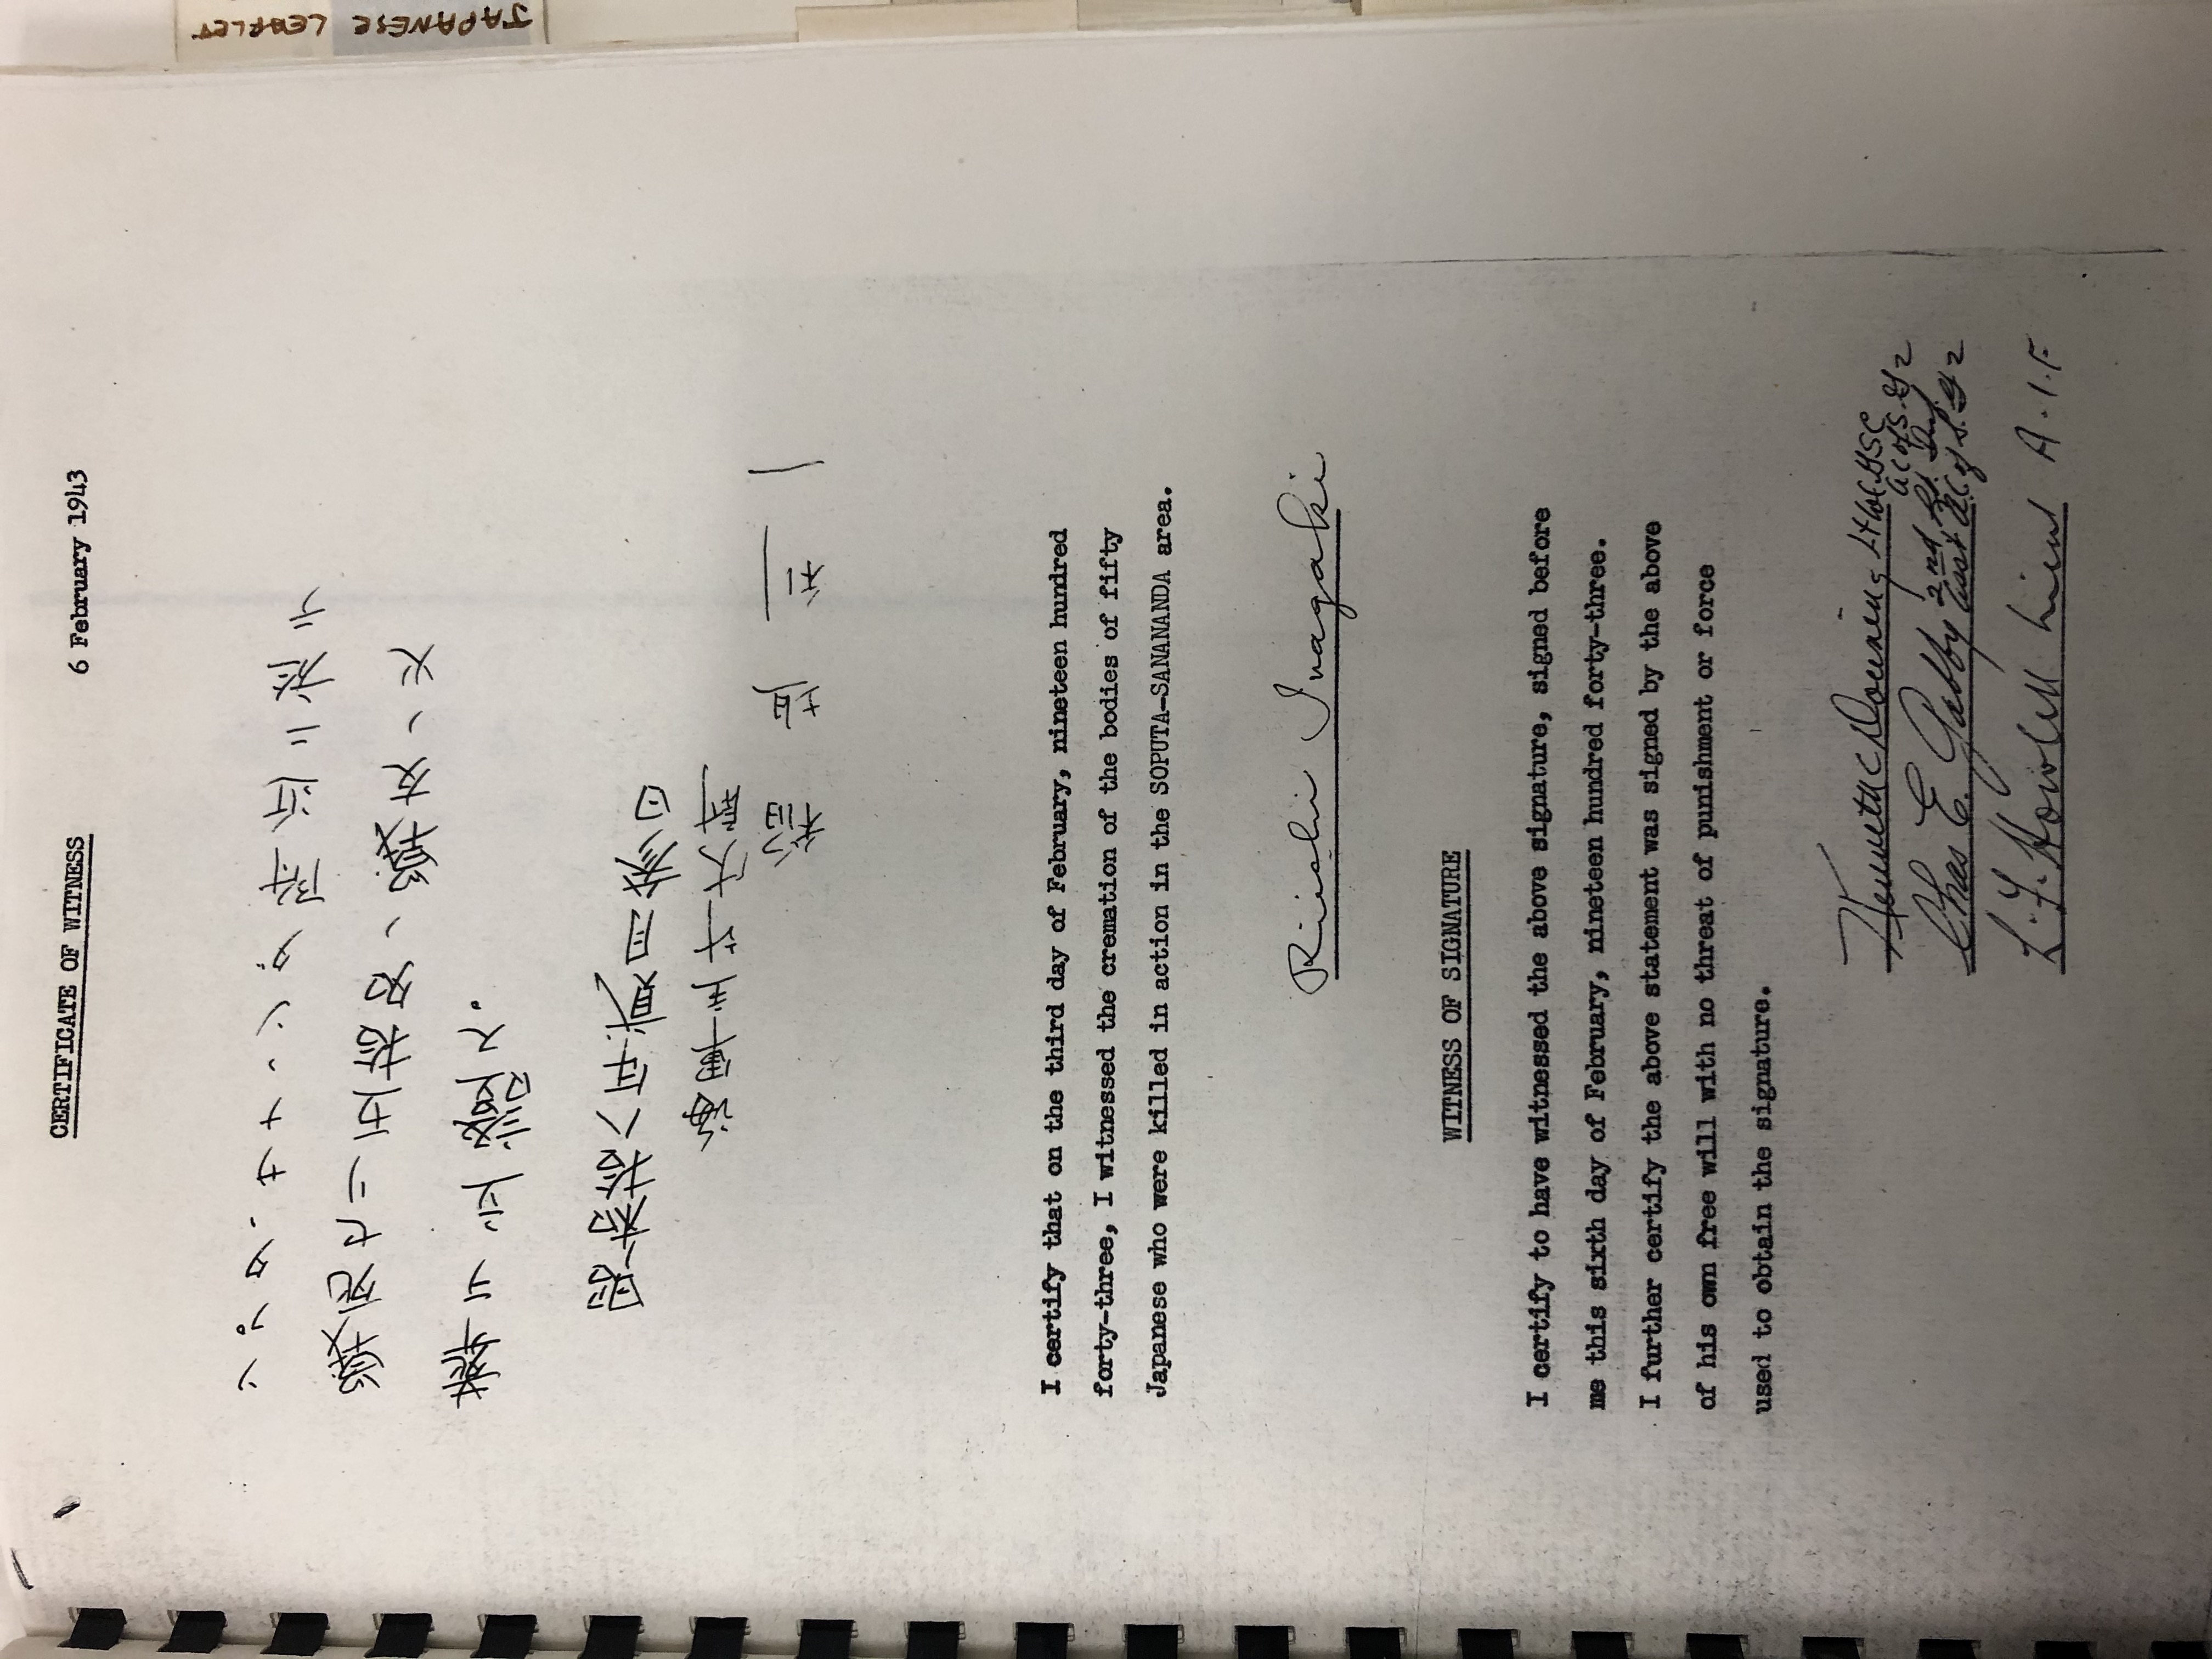 CERTIFICATE OF WITNESS
6 February 1943
ソプタ、サナナンダ附近ニ於テ
戦死セリ五拾名ノ戦友ノ火
葬ヲ立證ス。
昭和拾八年貳月参日
海軍主計大尉
稲垣利一
I certify that on the third day of February, nineteen hundred
forty-three, I witnessed the cremation of the bodies of fifty
Japanese who were killed in action in the SOPUTA-SANANANDA area.
Riichi Inagaki
WITNESS OF SIGNATURE
I certify to have witnessed the above signature, signed before
me this sixth day of February, nineteen hundred forty-three.
I further certify the above statement was signed by the above
of his own free will with no threat of punishment or force
used to obtain the signature.
Kenneth C Downing
AC of S. G2
Chas E. Gabby 2nd Lt. Inf
Asst AC of S. G2
L.G. Howlett Lieut A.I.F.
JAPANESE LEAFLET